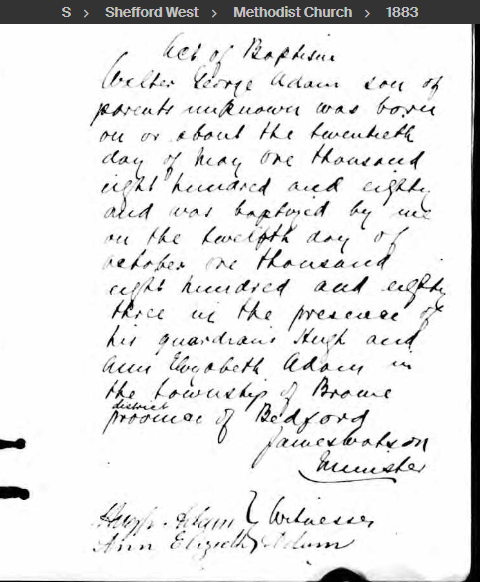 S > Shefford West > Methodist Church > 1883
Act of Baptism
Walter George Adam son of
parents unknown was born
on or about the twentieth
day of May one thousand
eight hundred and eighty
and was baptized by me
on the twelfth day of
october one thousand
eight hundred and eighty
three in the presence of
his guardians Hugh and
Ann Elizabeth Adam in
the township of Brome
district
province of Bedford
James Watson
Minister
Hugh Adam } Witnesses
Ann Elizabeth Adam